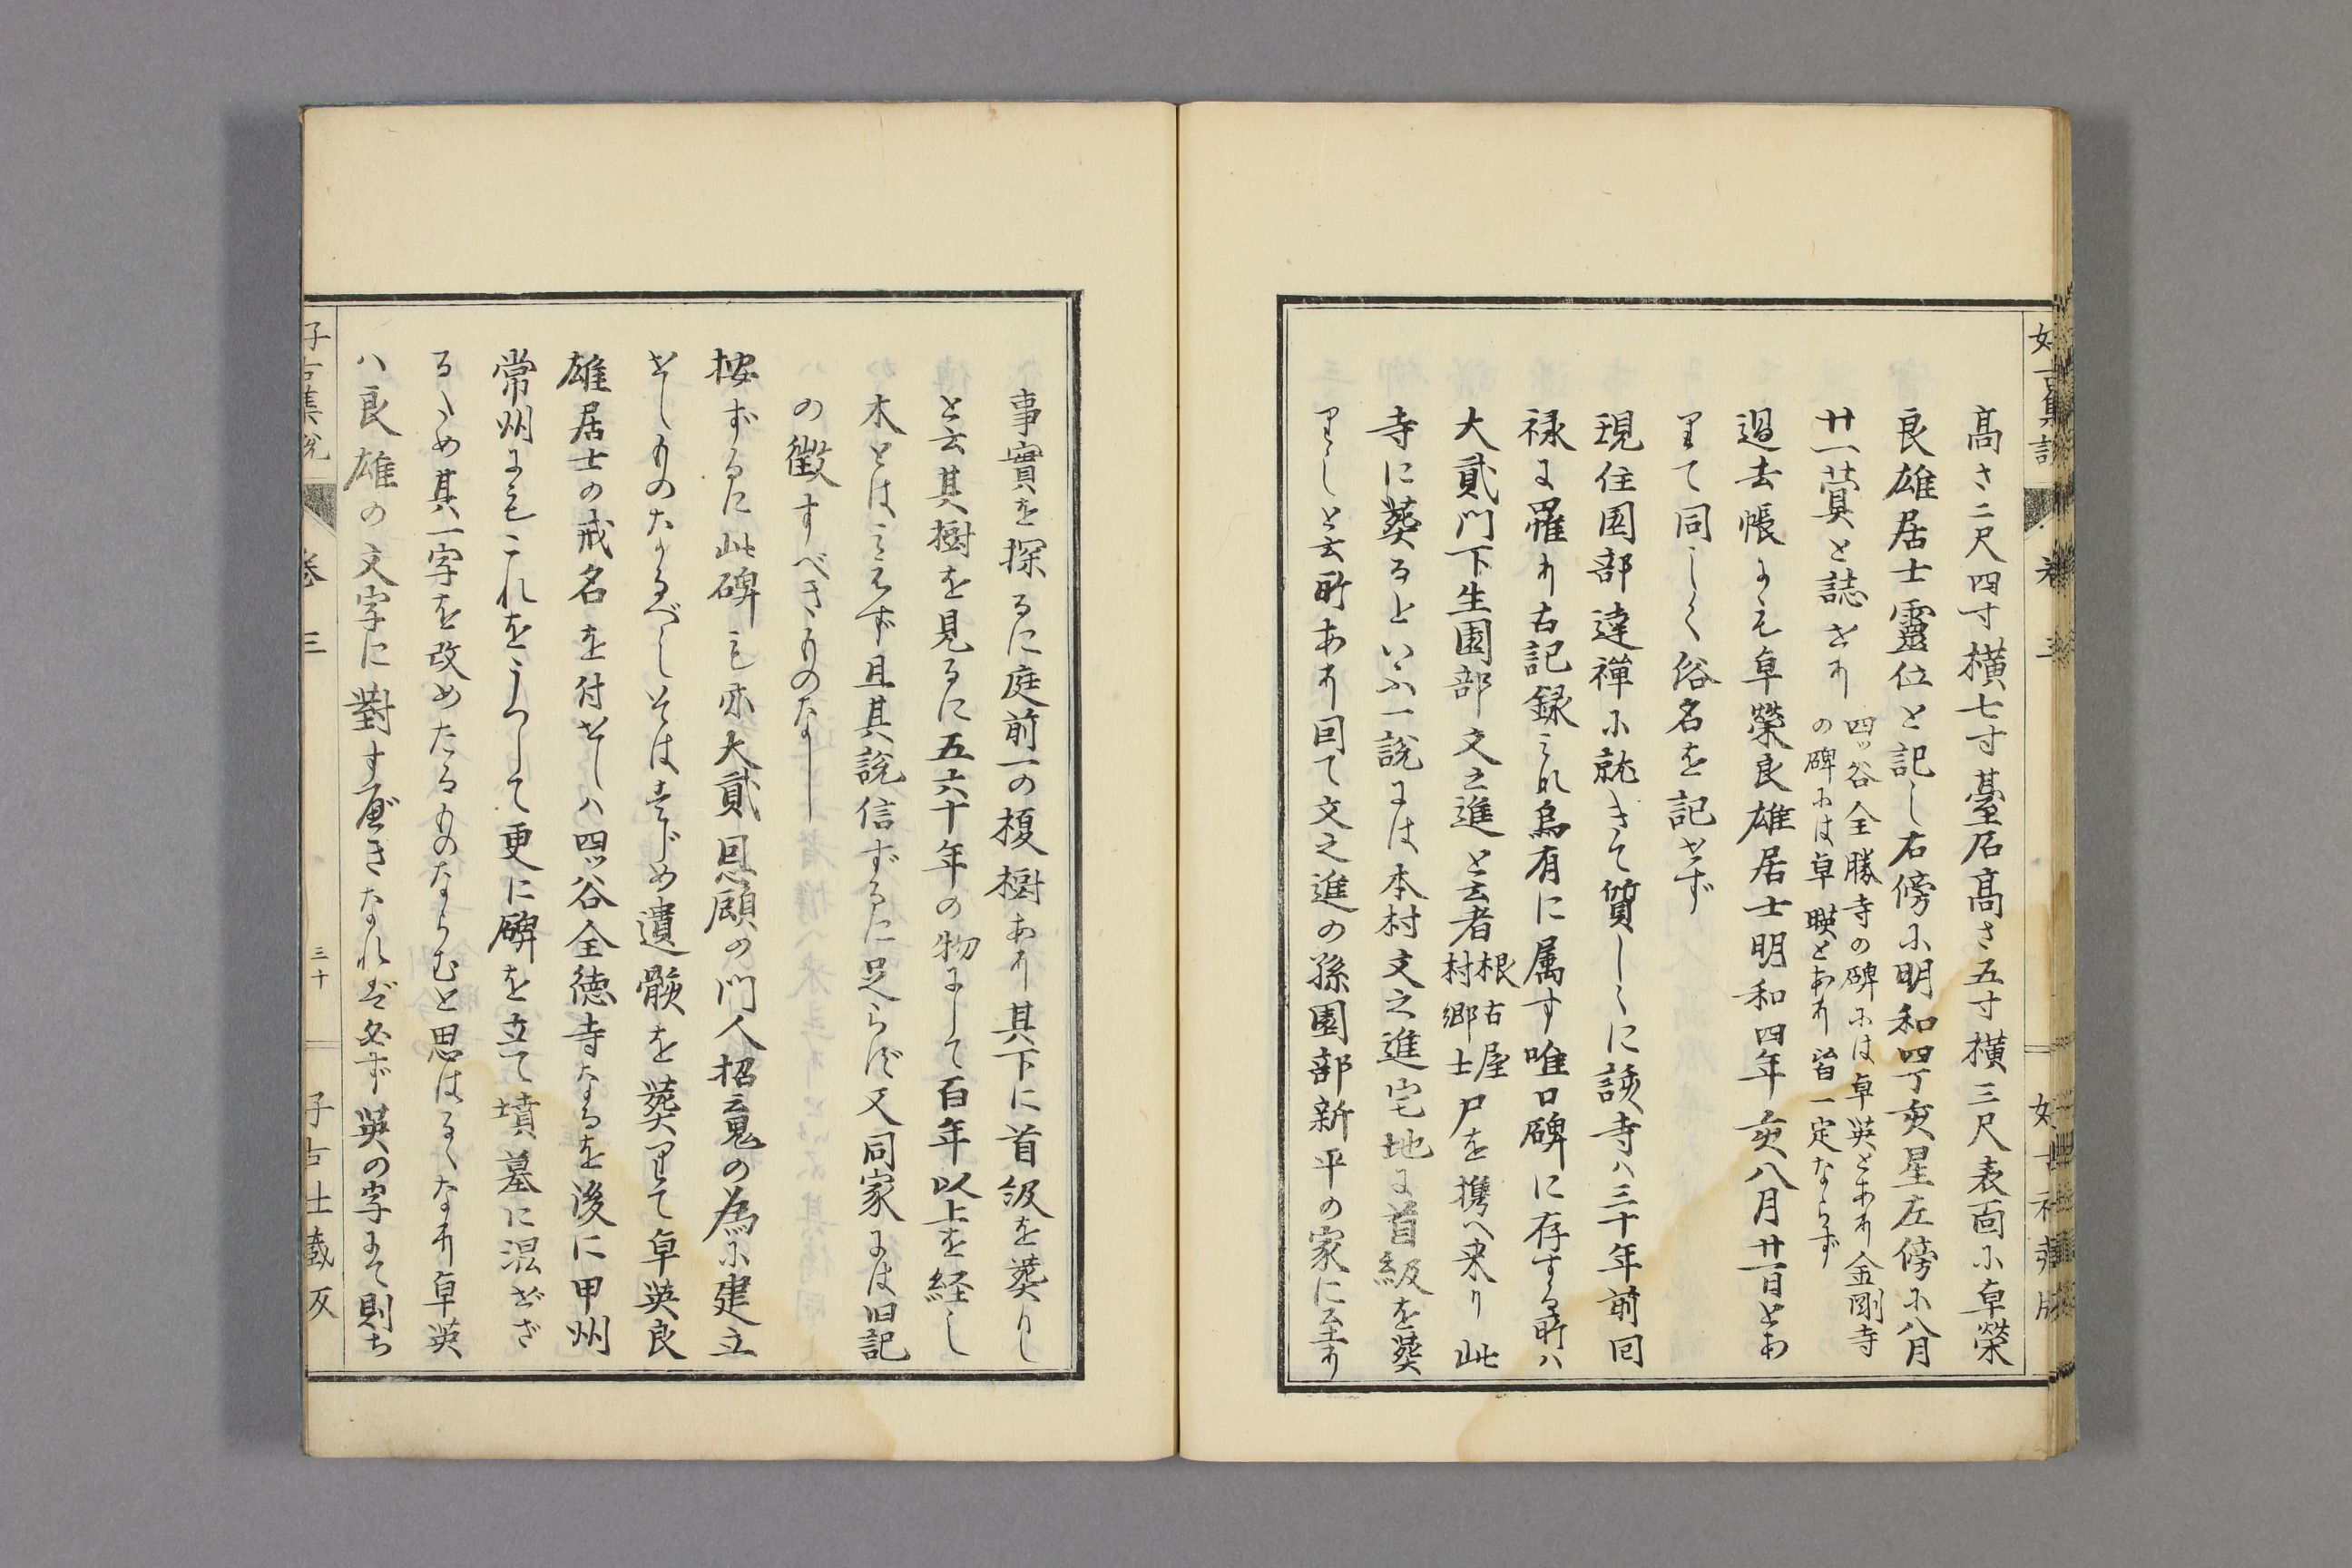 高さ二尺四寸横七寸臺石高さ五寸横三尺表面ふ卓榮
良雄居士靈位と記し右傍ふ明和四丁亥星左傍ふ八月
廿一蓂と誌せり
四ッ谷全勝寺の碑ふは卓英とあり金剛寺
の碑ふは卓暎とあり皆一定ならず
過去帳にも卓榮良雄居士明和四年亥八月廿一日とあ
りて同しく俗名を記せず
現住園部達禅ふ就きて質しゝに該寺ハ三十年前回
禄に罹り古記録みな烏有に属す唯口碑に存する所ハ
大貳門下生園部文之進と云者
根古屋
村郷士
尸を携へ来り此
寺に葬るといふ一説には本村文之進宅地に首級を葬
りしと云所あり回て文之進の孫園部新平の家に至り
事實を探るに庭前一の榎樹あり其下に首級を葬りし
と云其樹を見るに五六十年の物にして百年以上を経し
木とはみえず且其説信ずるに足らず又同家には旧記
の徴すべきものなし
按ずるに此碑も亦大貳恩顧の門人招魂の為ふ建立
せしものなるべしそははじめ遺骸を葬りて卓英良
雄居士の戒名を付せしハ四ッ谷全徳寺なるを後に甲州
常州にもこれをうつして更に碑を立て墳墓に混ぜざ
るため其一字を改めたるものならむと思はるゝなり卓英
ハ良雄の文字に對す可きなれば必ず英の字にて則ち
卷三
三十